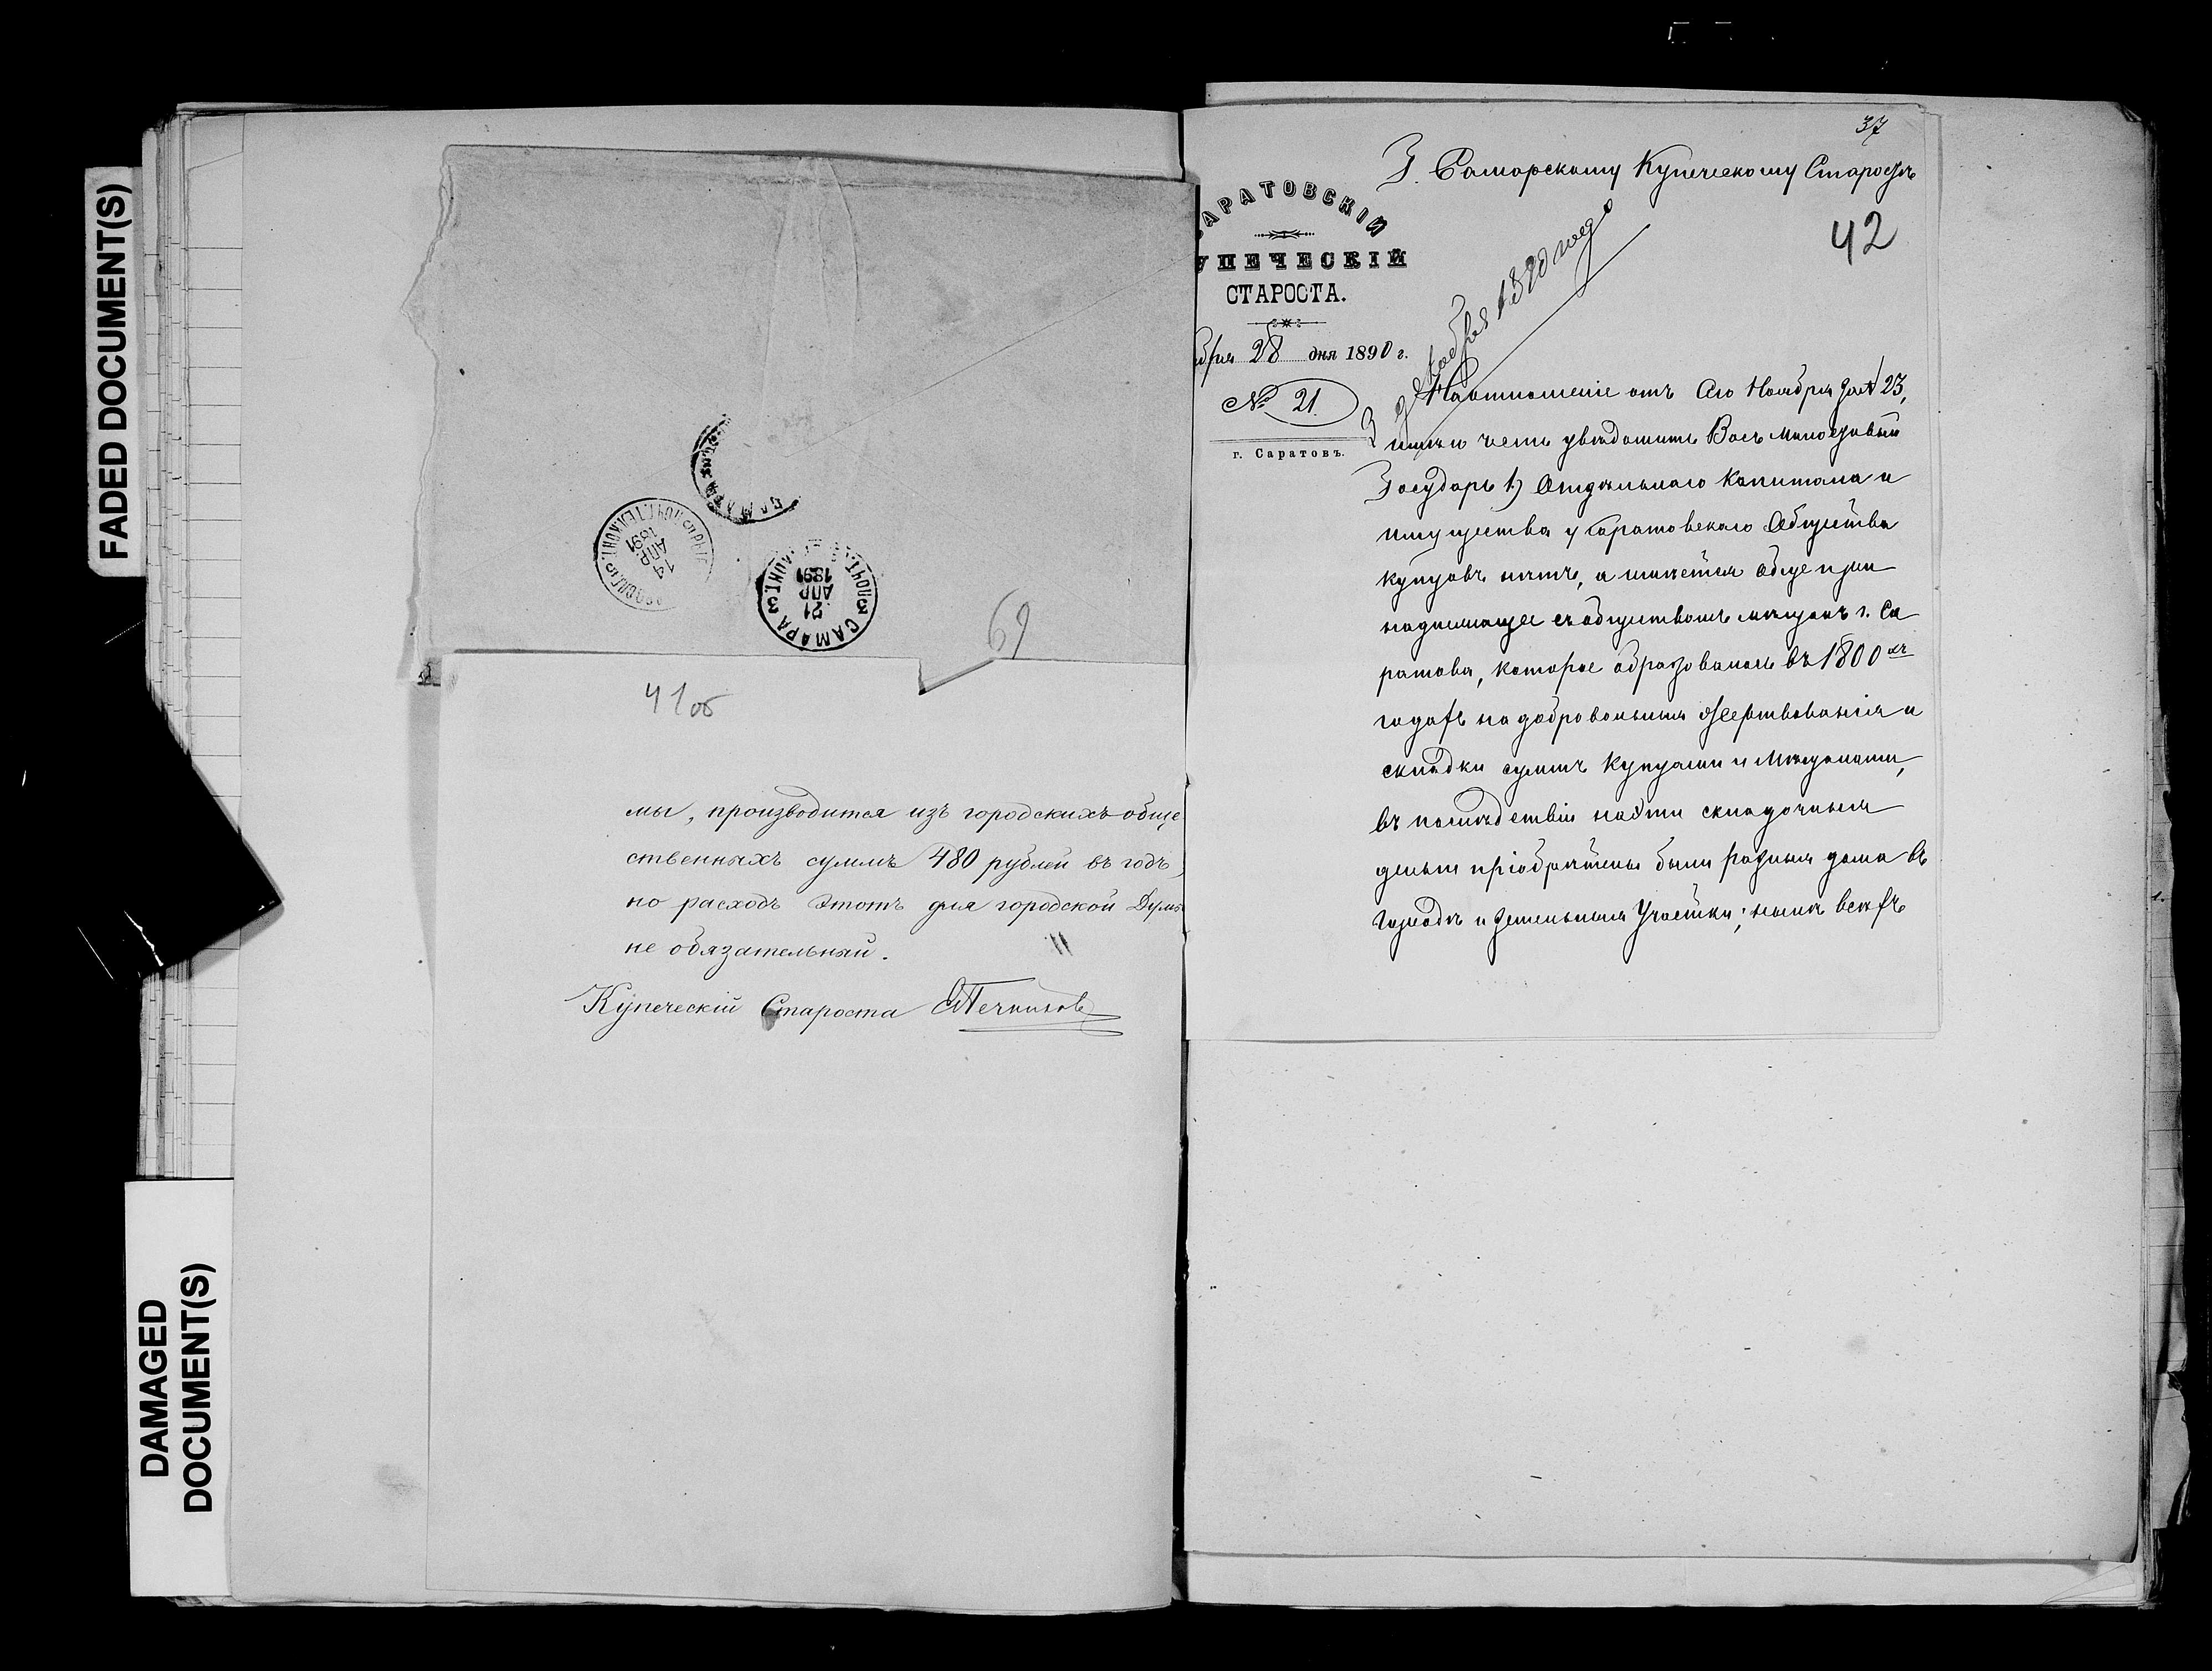 FADED DOCUMENT(S)
DAMAGED
DOCUMENT(S)
САМАРА
14
АПР
1891
САМАРА
21
АПР
1891
69
41 об
мы, производится изъ городскихъ обще
ственныхъ суммъ 480 рублей въ годъ,
но расходъ этотъ для городской Думы
не обязательный.
Купеческій Староста
37
Г. Самарскому Купеческому Старостѣ
42
АРАТОВСКІЙ
УПЕЧЕСКІЙ
СТАРОСТА.
бря 28 дня 1890 г.
№ 21.
г. Саратовъ.
1890 года
На отношеніе отъ сего Ноября за № 23,
имѣю честь увѣдомить Васъ Милостивый
Государь 1) Отдѣльнаго капитала и
имущества у Саратовскаго Общества
купцовъ нѣтъ, а имѣется общее при
надлежащее съ обществомъ мѣщанъ г. Са
ратова, которое образовалось въ 1800-хъ
годахъ на добровольныя пожертвованія и
складки суммъ Купцами и Мѣщанами,
въ послѣдствіи на эти складочныя
деньги пріобрѣтены были разныя дома въ
Городѣ и земельныя Участки; нынѣ всѣхъ